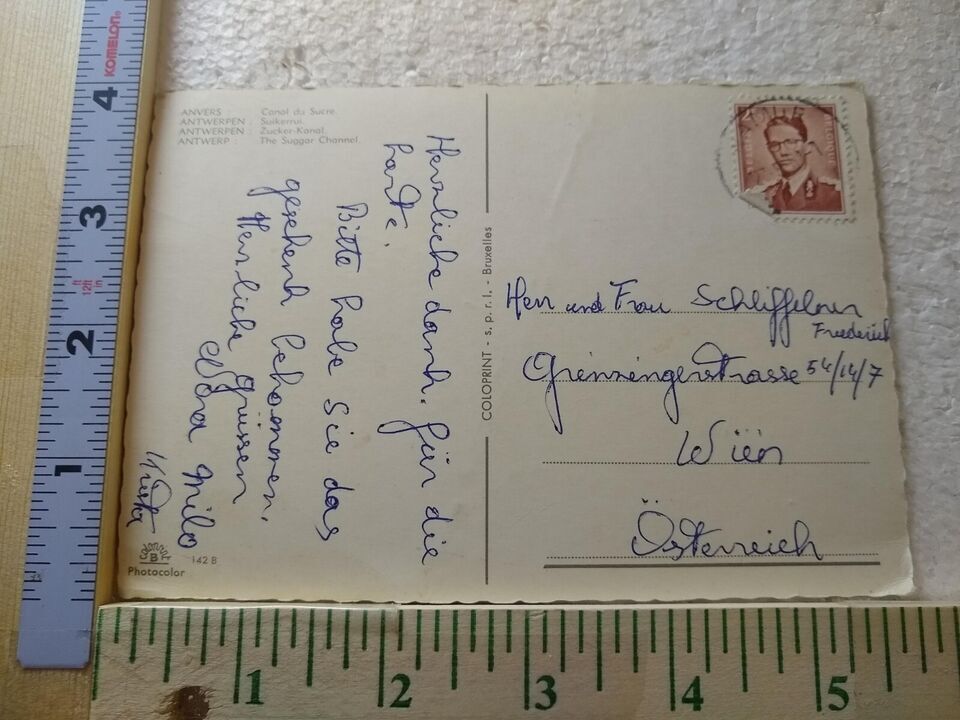 ANVERS : Canal du Sucre.
ANTWERPEN : Suikerrui.
ANTWERPEN : Zucker-Kanal.
ANTWERP : The Suggar Channel.
Herzliche danh. für die
harte.
Bitte habe Sie das
geschenh behommen.
Herzliche Grüssen
Clora Milo
COLOPRINT - s. p. r. l. - Bruxelles
Herr und Frau Schliffelner
Frederich
Grienzengerstrasse 54/14/7
Wiën
Österreich
142 B
Photocolor
KOMELON
4
3
12ft
in
2
1
1
2
3
4
5